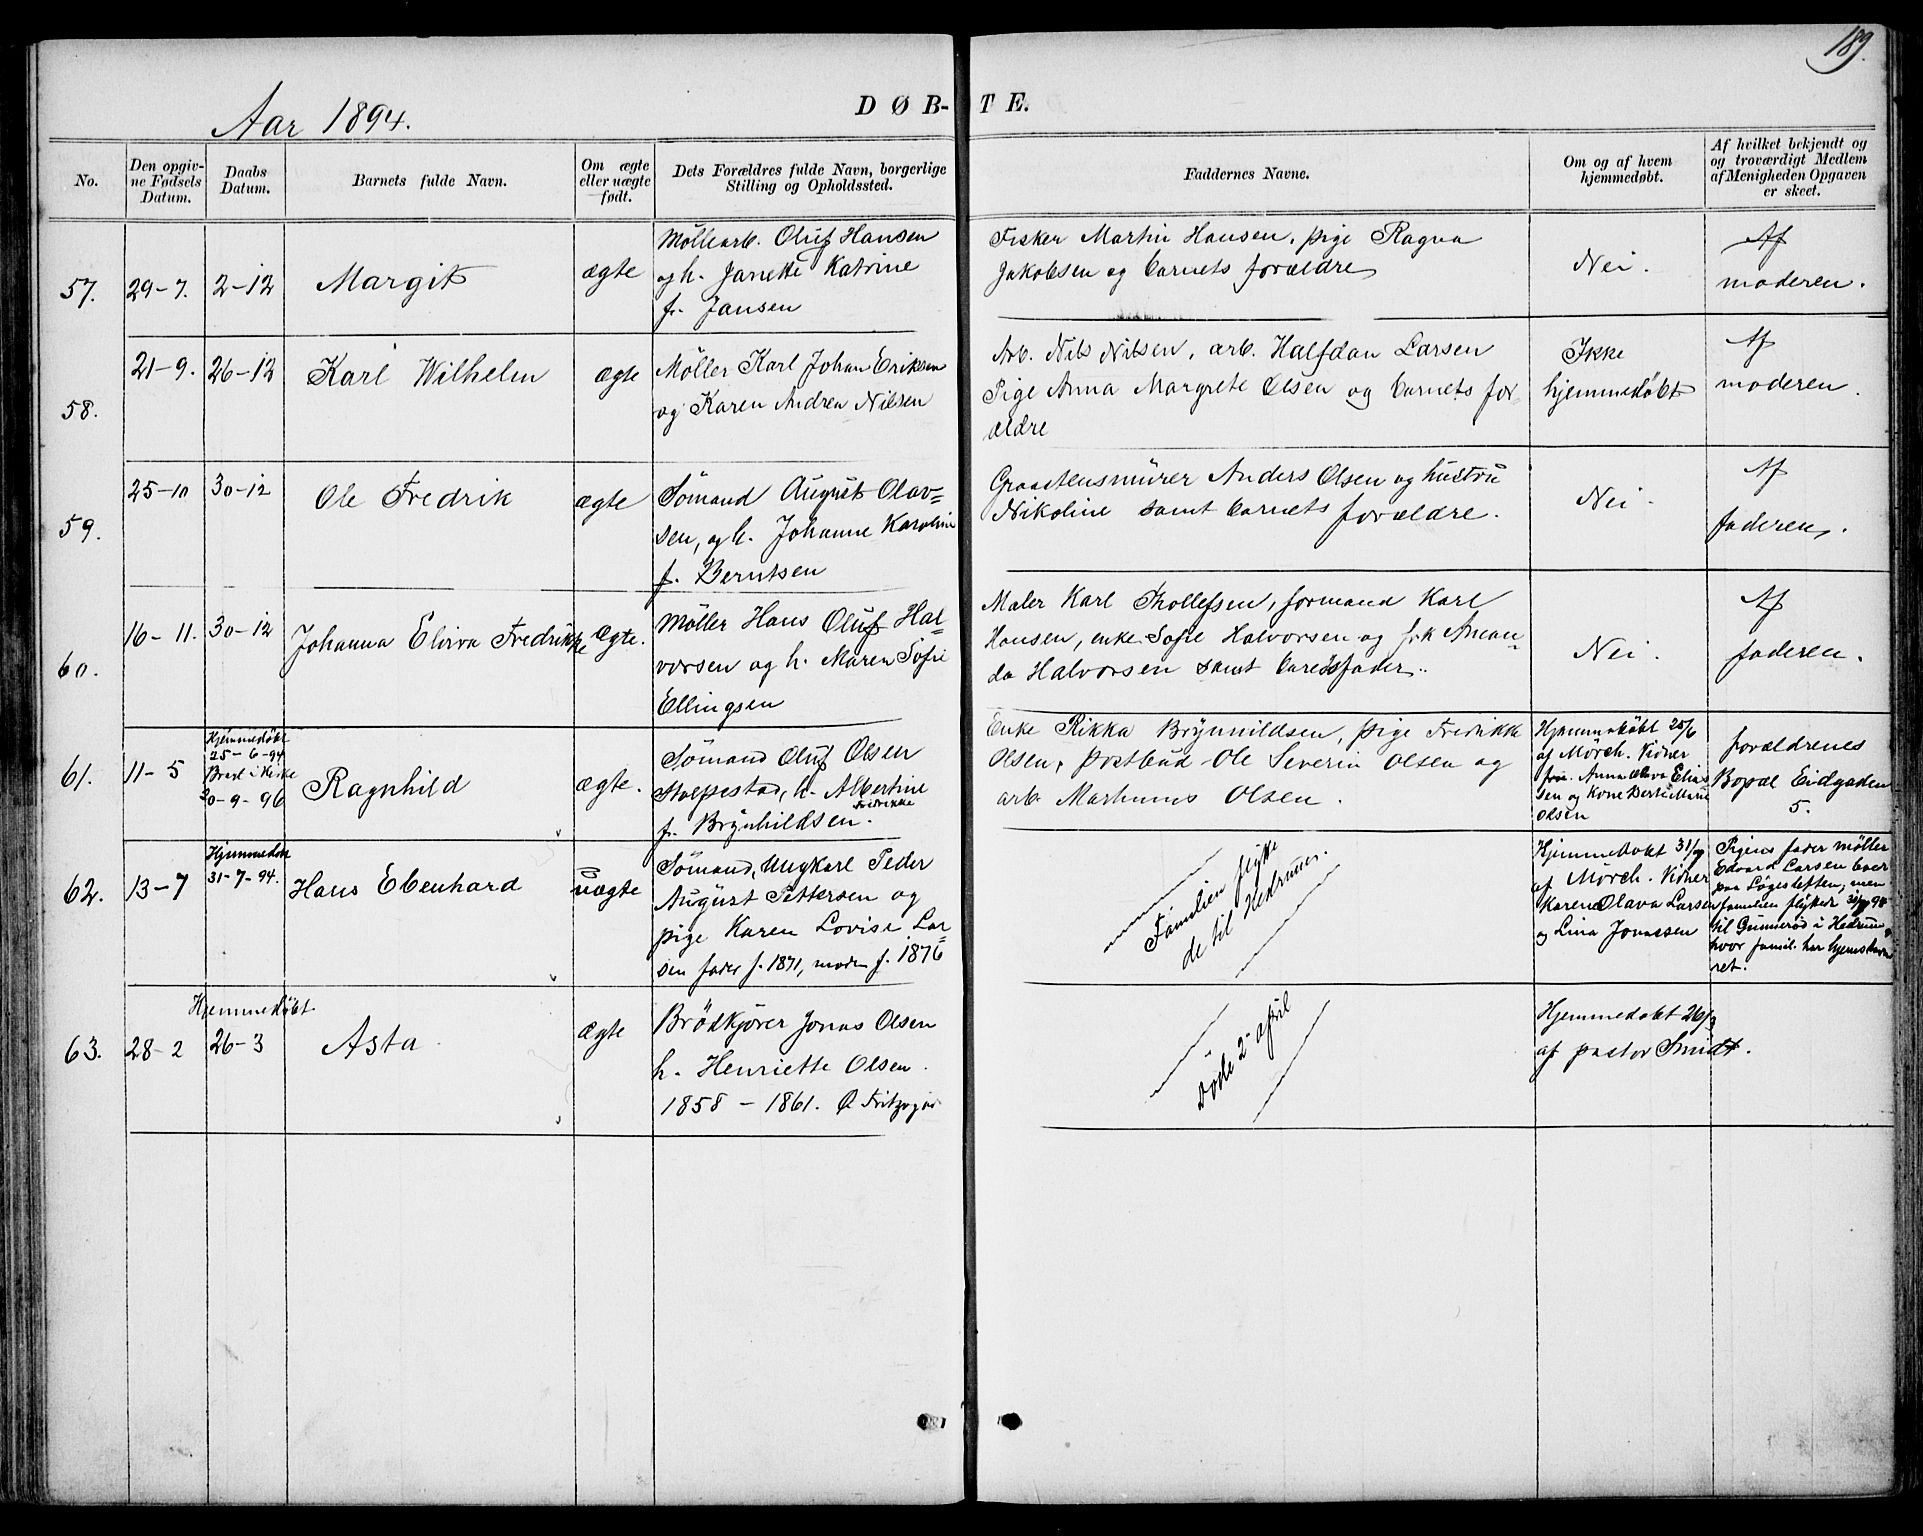 189.
Aar 1894.
DØB-TE.
No.
Den opgiv-
ne Fødsels
Datum.
Daabs
Datum.
Barnets fulde Navn.
Om ægte
eller uægte
født.
Dets Forældres fulde Navn, borgerlige
Stilling og Opholdssted.
Faddernes Navne.
Om og af hvem
hjemmedøbt.
Af hvilket bekjendt og
og troværdigt Medlem
af Menigheden Opgaven
er skeet.
57.
29-7.
2-12
Margit
ægte
Møllearb. Oluf Hansen
og h. Janette Katrine
f. Jansen
Fisker Martin Hansen, pige Ragna
Jakobsen og barnets forældre
Nei.
Af
moderen.
58.
21-9.
26-12
Karl Wilhelm
ægte
Møller Karl Johan Eriksen
og Karen Andrea Nilsen
Arb. Nils Nilsen, arb. Halfdan Larsen
Pige Anna Margrete Olsen og barnets for-
ældre
Ikke
hjemmedøbt
Af
moderen.
59.
25-10
30-12
Ole Fredrik
ægte
Sømand August Olav=
sen, og h. Johanne Karoline
f. Berntsen
Graastensmürer Anders Olsen og hustru
Nikoline samt barnets forældre.
Nei.
Af
faderen.
60.
16-11.
30-12
Johanna Elvira Fredrikke
Ægte.
Møller Hans Oluf Hal-
vorsen og h. Maren Sofie
Ellingsen
Maler Karl Thollefsen, formand Karl
Hansen, enke Sofie Halvorsen og frk Aman-
da Halvorsen samt barnets fader.
Nei.
Af
faderen.
61.
11-5
Hjemmedøbt
25-6-94
i Kirke
20-9-96
Ragnhild
ægte.
Sømand Oluf Olsen
Stolpestad, h. Albertine
Fredrikke
f. Brynhildsen.
Enke Rikka Brynhildsen, pige Fredrikke
Olsen, postbud Ole Severin Olsen og
arb. Marhinus Olsen.
Hjemmedøbt 25/6
af Mørch. Vidner
Anna Olava Elias
sen og Kone Berte Marie
Olsen
forældrenes
Bopæl Eidgaden
5.
62.
13-7
Hjemmedøbt
31-7-94.
Hans Ebenhard
uægte
Sømand, Ungkarl Peder
August Pettersen og
pige Karen Lovise Lar=
sen fader f. 1871, moder f. 1876
Familien flytte
de til Hedrum.
Hjemmedøbt 31/7
af Mörch. Vidner
Karen Olava Larsen
og Lina Jonassen
Pigens fader møller
Edvard Larsen boer
paa Løgesletten, men
familien flytter 94
til Gunnerød i Hedrum,
hvor famil. har hjemstavns
ret.
63.
28-2
Hjemmedøbt
26-3
Asta
Ægte
Brödkjører Jonas Olsen
h. Henriette Olsen.
1858 - 1861.
Døde 2 april
Hjemmedøbt 26/3
af pastor Smidt.